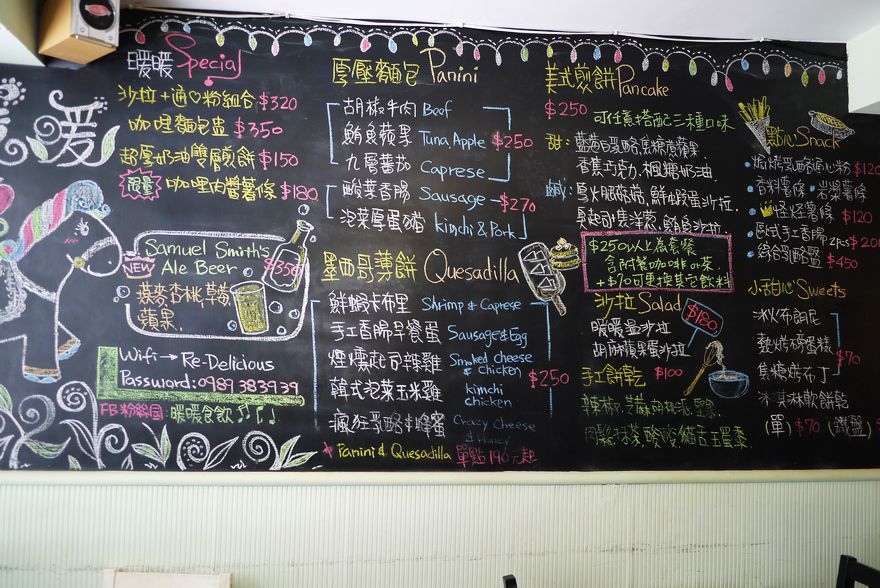 暖
暖暖 Special
沙拉+通心粉組合 $320
咖哩麵包盅 $350
超厚奶油雙層鬆餅 $150
限量 咖哩肉醬薯條 $180
Samuel Smith's
NEW Ale Beer $350
燕麥 杏桃 草莓
蘋果
Wifi → Re-Delicious
Passward: 0989383939
FB 粉絲團: 暖暖食飲
厚壓麵包 Panini
胡椒牛肉 Beef
鮪魚蘋果 Tuna, Apple $250
九層蕃茄 Caprese
酸菜香腸 Sausage $270
泡菜厚蛋豬 kimchi & Pork
墨西哥薄餅 Quesadilla
鮮蝦卡布里 Shrimp & Caprese
手工香腸早餐蛋 Sausage & Egg
煙燻起司辣雞 Smoked cheese & chicken $250
韓式泡菜玉米雞 kimchi chicken
瘋狂乳酪&蜂蜜 Crazy cheese & Honey
Panini & Quesadilla 單點190元起
美式煎餅 Pancake
$250 可任意搭配三種口味
甜: 藍莓乳酪.焦糖蘋果
香蕉巧克力.楓糖奶油
鹹: 雪火腿菇菇.鮮蝦蛋沙拉.
鮪魚沙拉.
$250以上為套餐
含附餐咖啡or茶
+$70可更換其它飲料
沙拉 Salad $180
暖暖溫沙拉
胡麻蘋果蛋沙拉
手工餅乾 $100
點心 Snack
焗烤乳酪通心粉 $120
香料薯條・岩漿薯條
怪怪薯條 $120
歐式手工香腸 2pcs $20
綜合乳酪盤 $450
小甜心 Sweets
冰火布朗尼
熱烤磅蛋糕 $70
焦糖烤布丁
冰淇淋軟餅乾
(單) $70 (鐵盤) $